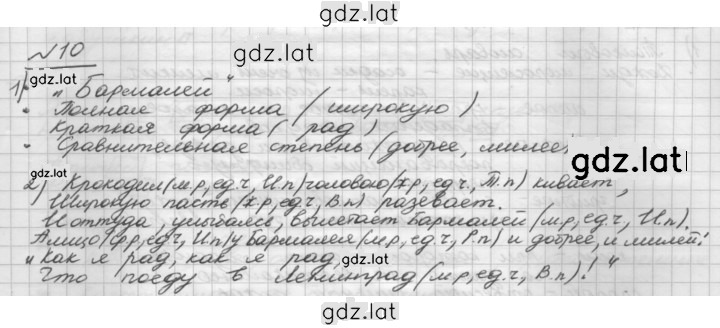 gdz.lat
№10
gdz.lat
1) „Бармалей“
· Полная форма (широкую)
Краткая форма (рад)
· Сравнительная степень (добрее, милее)
gdz.lat
gdz.lat
2) Крокодил (м.р, ед.ч, И.п) головою (ж.р, ед.ч, Т.п) кивает,
Широкую пасть (ж.р, ед.ч, В.п) разевает.
И оттуда, улыбаясь, вылетает Бармалей (м.р, ед.ч, И.п).
А лицо (ср.р, ед.ч, И.п) у Бармалея (м.р, ед.ч, Р.п) и добрее, и милей!
„Как я рад, как я рад,
Что поеду в Ленинград (м.р, ед.ч, В.п)!“
gdz.lat